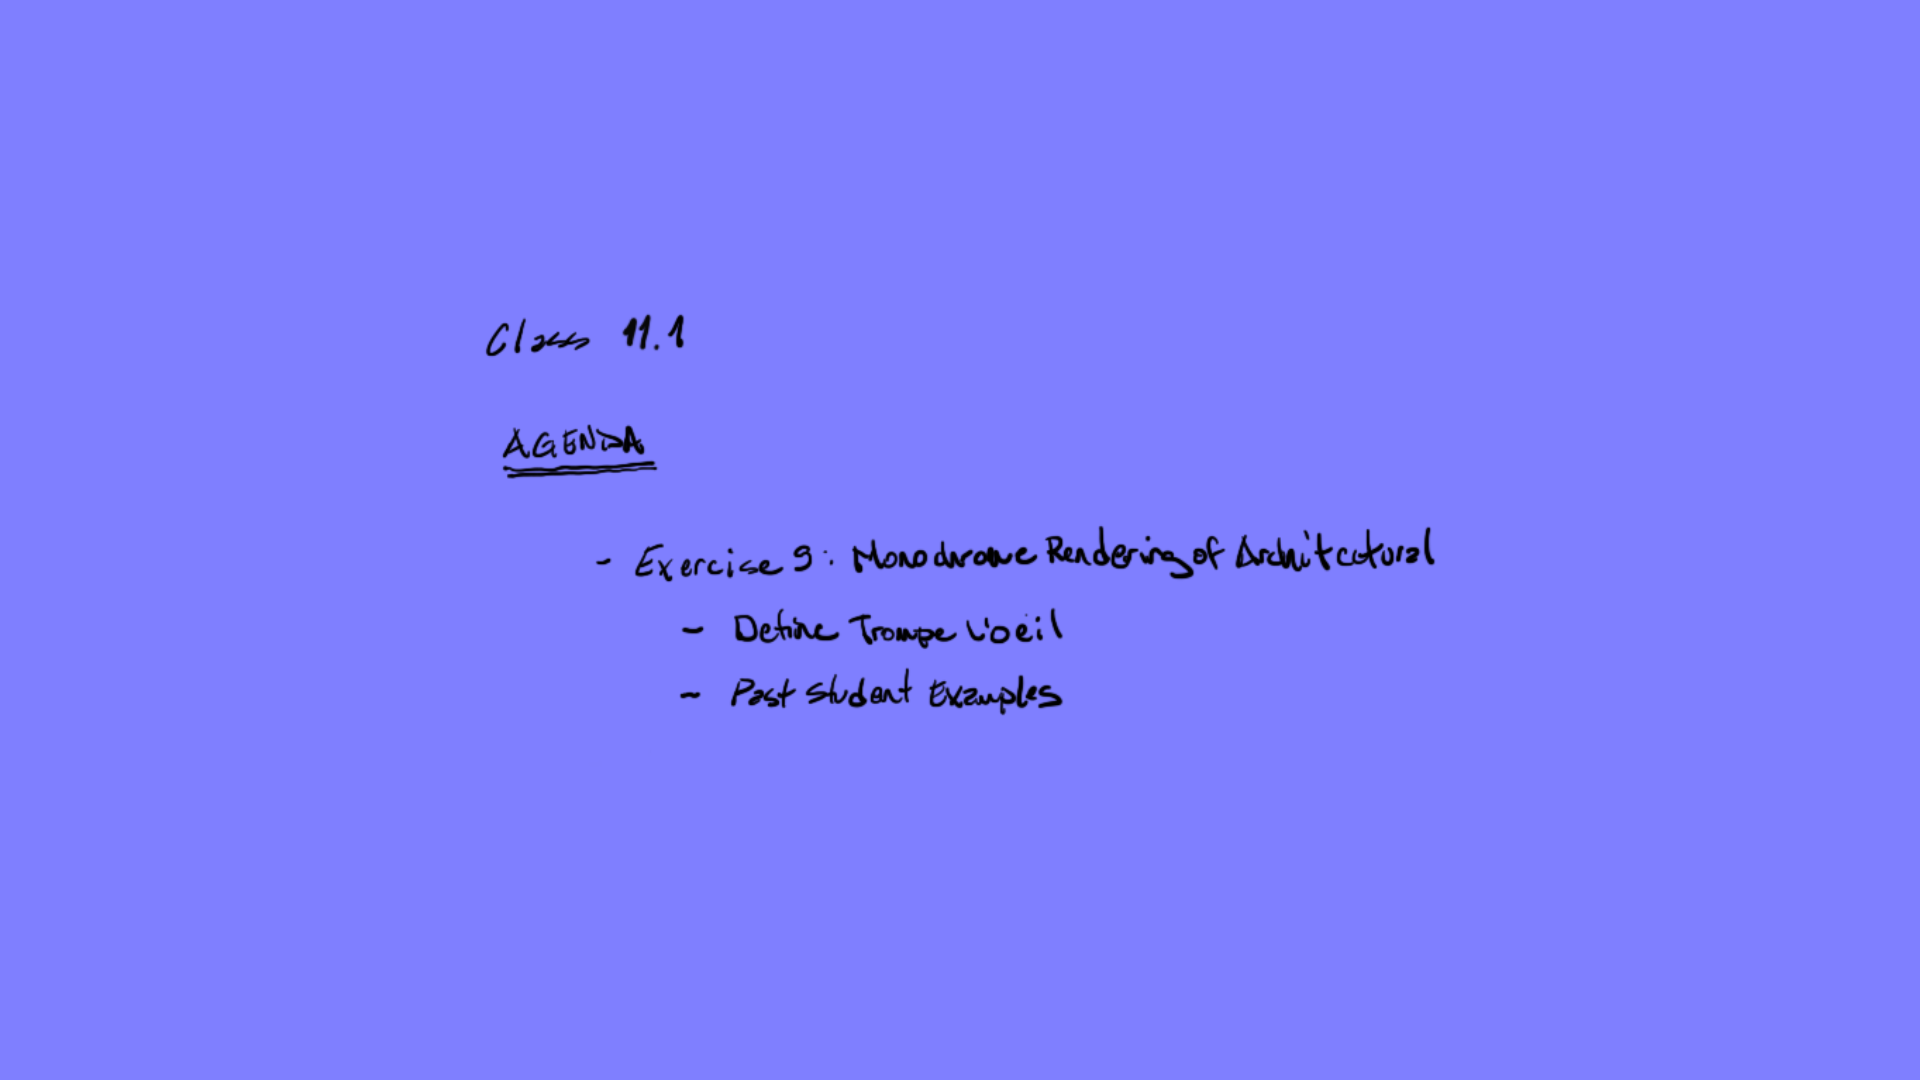 Class 11.1
AGENDA
- Exercise 9: Monochrome Rendering of Architectural
- Define Trompe L'oeil
- Past Student Examples